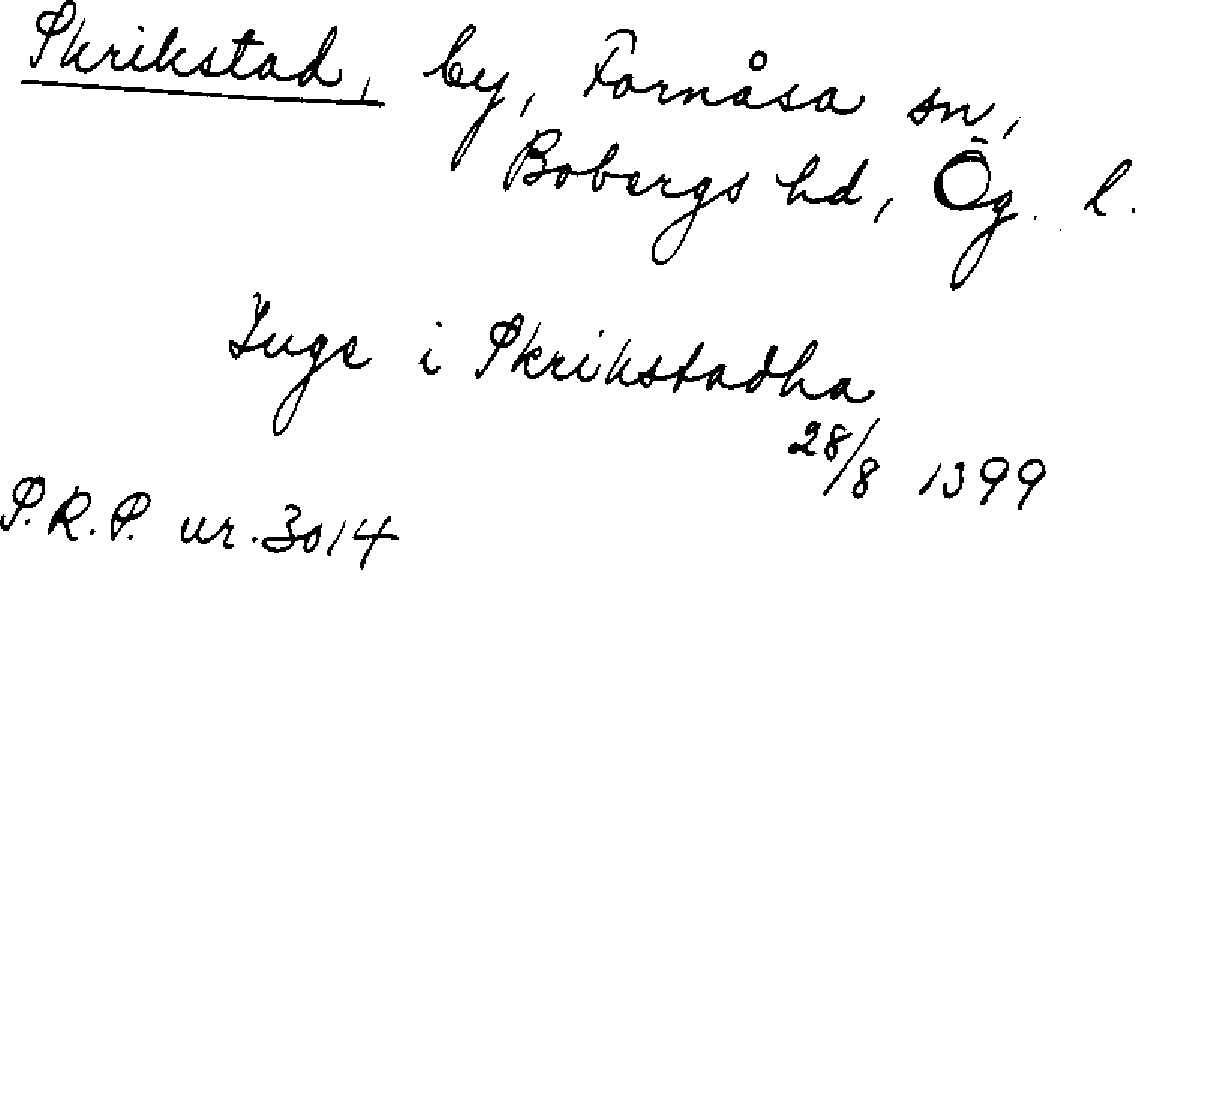 Skrikstad, by, Fornåsa sn,
Bobergs hd, Ög. l.
Inge i Skrikstadha
28/8 1399
S.R.P. nr. 3014